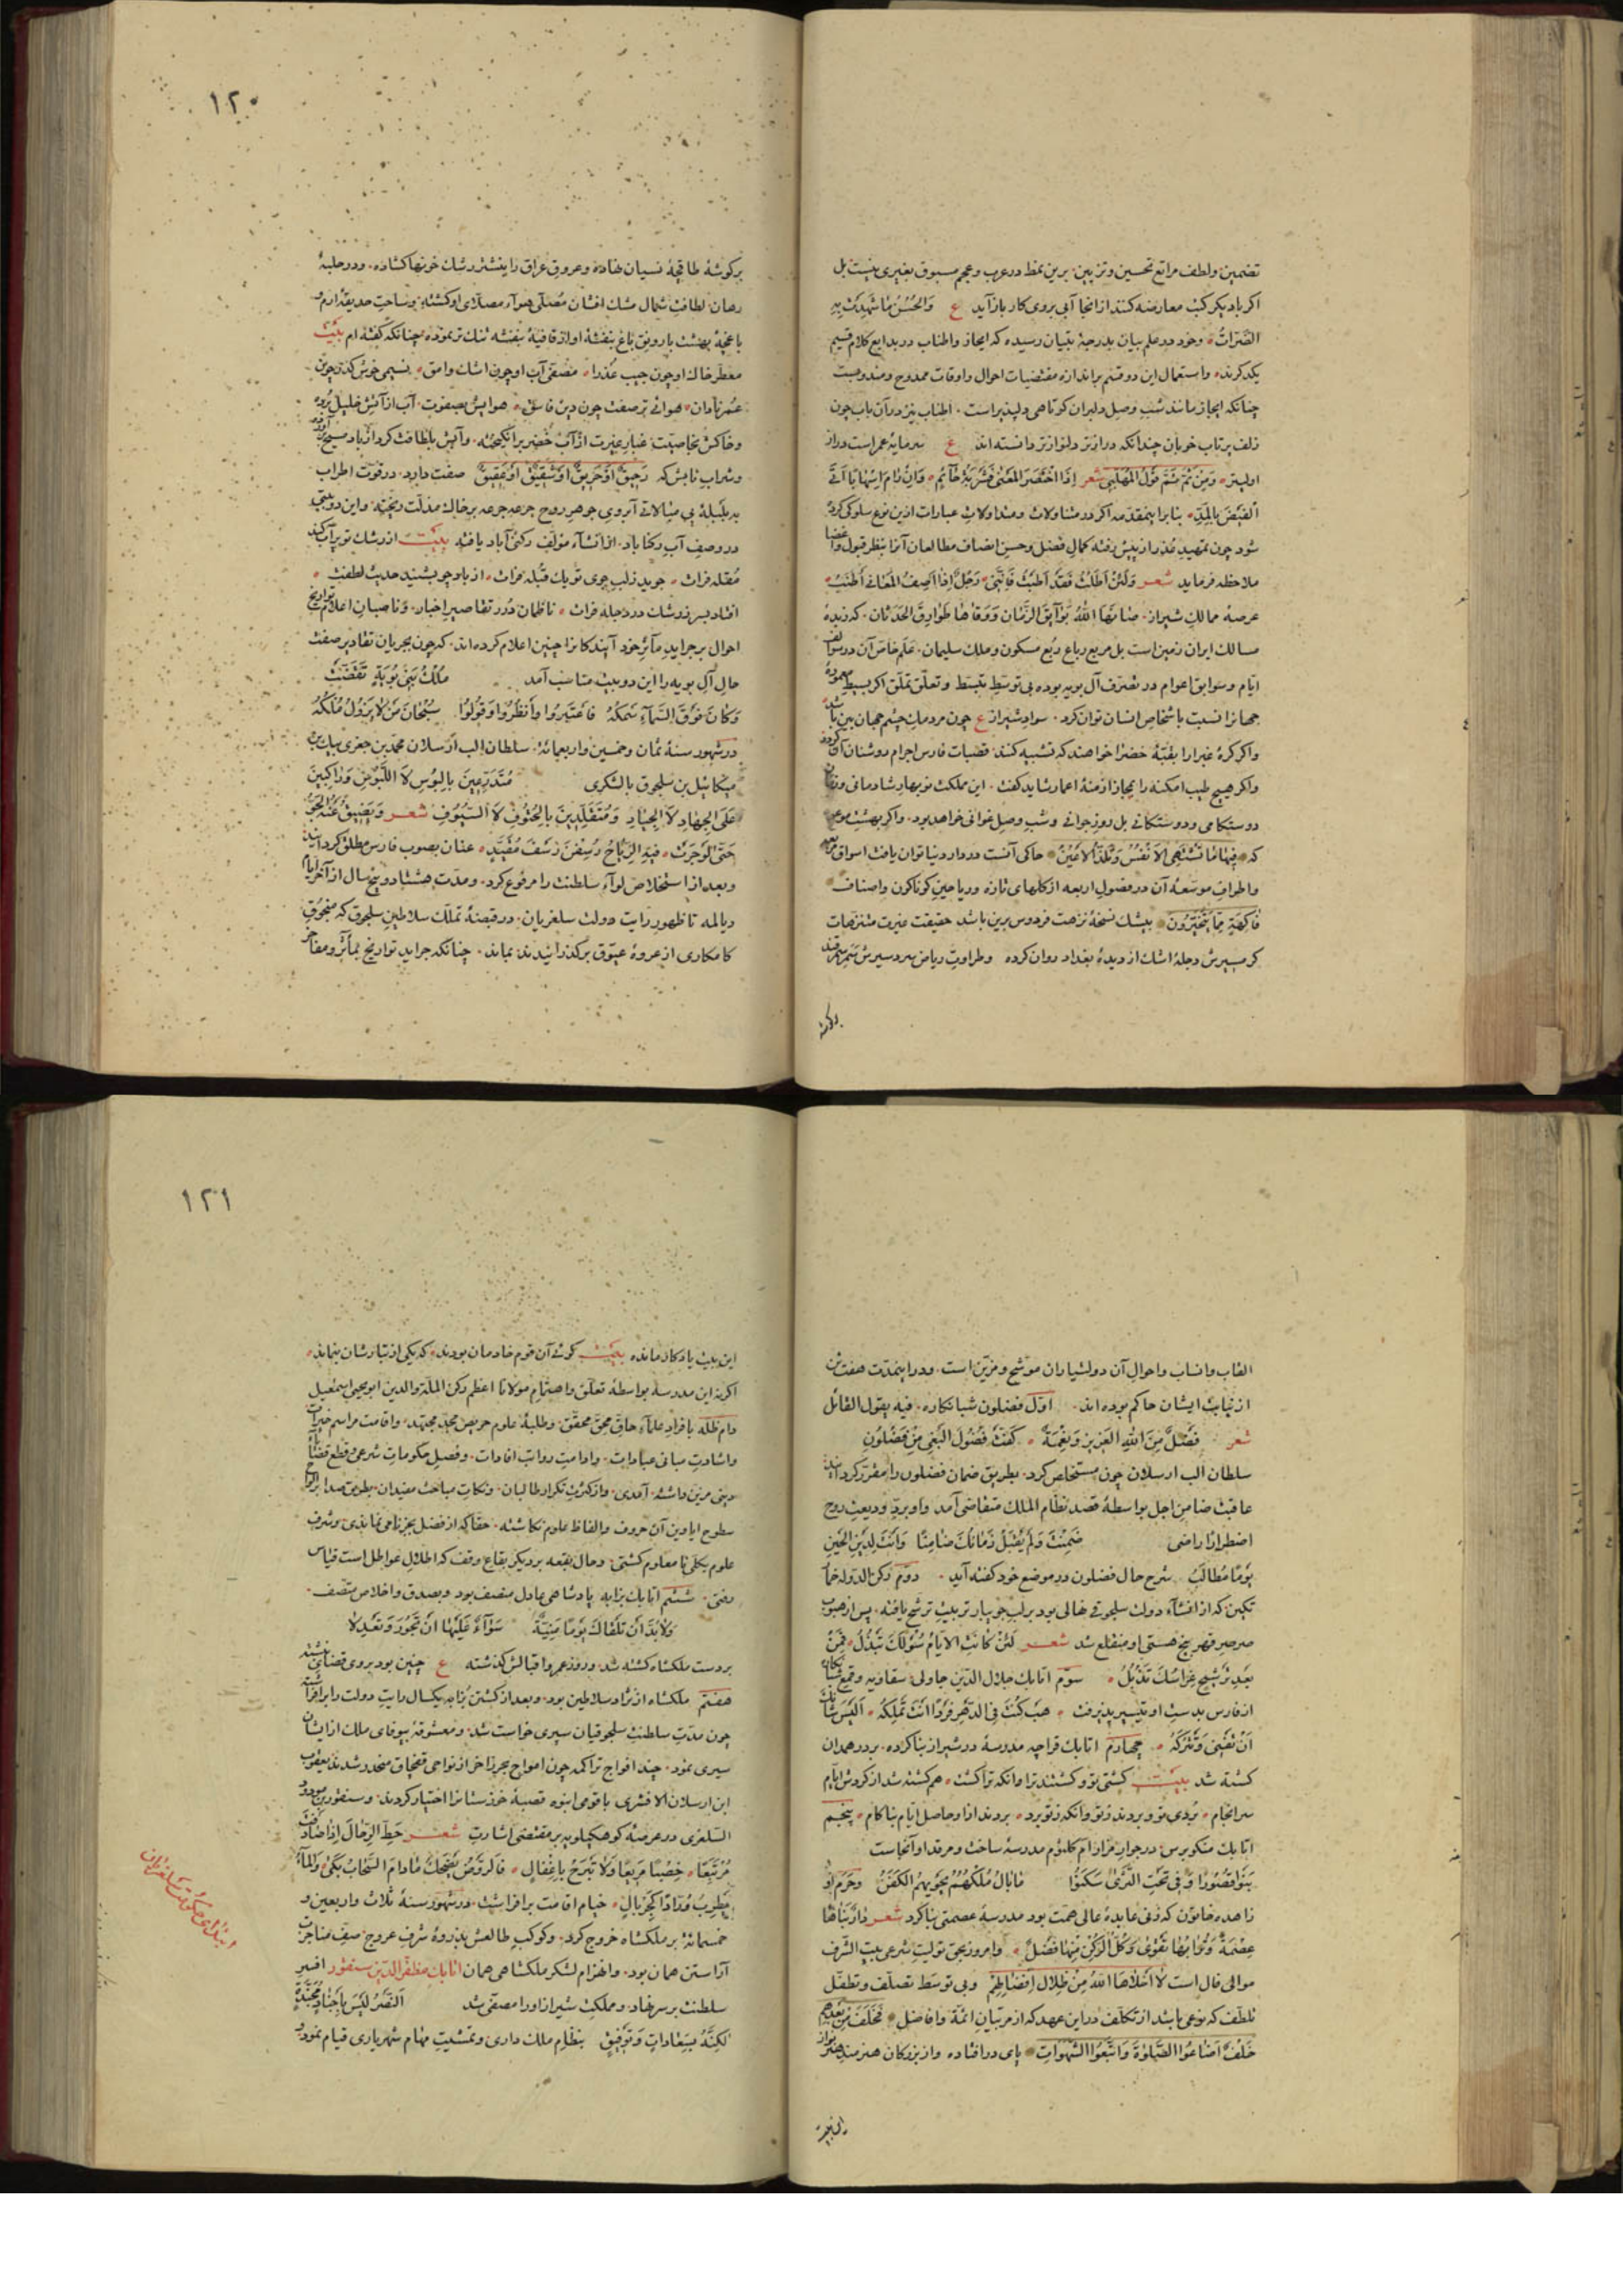 تضمین ولطف مراتع تحسین وتزیین برین نمط در عرب وعجم مسبوق بغیری نیست بل
اکر با دیکر کتب معارضه کنند از انجا آبی بروی کار باز آید ع والحسن ما شهدت به
الضرات وخود در علم بیان بدرجهٔ تبیان رسیده که ایجاز واطناب در بدایع کلام قسیم
یکدکرند واستعمال این دو قسم بر اندازه مقتضیات احوال واوقات ممدوح ومندوبست
چنانکه ایجاز مانند شب وصل دلبران کوتاهی دلپذیر است اطناب نیز در آن باب چون
زلف پرتاب خوبان چندانکه درازتر دلنوازتر دانسته اند ع سرمایهٔ عمر است دراز
اولیتر ومن ثم قول المهلبی شعر
بنابر اینمقدمه اکر در متناولات ومتداولات عبارات ازین نوع سلوکی کرده
شود چون تمهید عذر از پیش رفته کمال فضل وحسن انصاف مطالعان آنرا بنظر قبول واغضا
ملاحظه فرماید شعر ولئن اطلت فقد اطبت فاننی رجل اذا اصف المعانی اطنب
عرصهٔ ممالک شیراز صانها الله بوآیق الزمان ووقاها طوارق الحدثان که زبدهٔ
مسالک ایران زمین است بل مربع رباع ربع مسکون وملک سلیمان علم خاص آن در سوالف
ایام وسوابق اعوام در تصرف آل بویه بوده بی توسط تبسط وتعلق تملق اکر بسیط معمورهٔ
جهانرا نسبت باشخاص انسان توان کرد سواد شیراز ع چون مردمک چشم جهان بین باشد
واکر کرهٔ غبرا را بقبهٔ خضرا خواهند که تشبیه کنند قصبات فارس اجرام روشنان آن کردد
واکر هیچ طیب امکنه را بمجاز ازمنهٔ اعمار شاید کفت این مملکت نوبهار شادمانی
دوستکامی ودوستکانی بل روز جوانی وشب وصل غوانی خواهد بود واکر بهشت موعود
که فیها ما تشتهی الانفس وتلذ الاعین حاکی آنست در دار دنیا توان یافت اسواق
واطراف موسعهٔ آن در فصول اربعه از کلهای تازه وریاحین کوناکون واصناف
فاکهة مما یتخیرون بیشک نسخهٔ نزهت فردوس برین باشد حقیقت غیرت متنزهات
کرمسیرش دجلهٔ اشک از دیدهٔ بغداد روان کرده وطراوت ریاض سردسیرش سمر سمرقند
۱۲۰
بر کوشهٔ طاقچهٔ نسیان نهاده وعروق عراق را بنشتر رشک خونها کشاده ودر حلبهٔ
رهان لطافت شمال مشک افشان مصلی هوآء مصلای او کشته وساحت حدیقهٔ ارم و
باغچهٔ بهشت با رونق باغ بنفشهٔ او از قافیهٔ بنفشه تنک تر نموده چنانکه کفته ام بیت
معطر خاک او چون جیب عذرا مصفی آب او چون اشک وامق نسیمی خوش کذر چون
عمر نادان هوائی تر صفت چون دین فاسق هوایش بصفوت آب از آتش خلیل برده
وخاکش بخاصیت غبار غیرت از آب خضر برانکیخته وآبش بلطافت کرد از باد مسیح برآورده
وشراب نابش که رحیق او حریق او شقیق او عقیق صفت دارد در قوت اطراب
به بلبلهٔ بی مبالات آبروی جوهر روح جرعه جرعه بر خاک مذلت ریخته واین دو بیتی
در وصف آب رکناباد از انشآء مؤلف رکنی آباد یافته بیت از رشک تو بر آب کند
مقله فرات جوید ز لب جوی تو یک قبله فرات از باد چو بشنید حدیث لطفت
افتاد بسر ز رشک در دجله فرات ناظمان درر تقاصیر اخبار وناصبان اعلام تواریخ
احوال بر جراید مآثر خود آیندکانرا چنین اعلام کرده اند که چون بجریان تقادیر صفت
حال آل بویه را این دو بیت مناسب آمد ملک بنی بویة تقضت
وکان فوق السماء سمکه فاعتبروا وانظروا وقولوا سبحان من لا یزول ملکه
در شهور سنهٔ ثمان وخمسین واربعمائة سلطان الب ارسلان محمد بن جغری بیک بن
میکائیل بن سلجوق بالشکری متدرعین بالبؤس لا اللبوس وراکبین
علی الجهاد لا الجیاد ومتقلدین بالحتوف لا السیوف شعر ویضیق عنه الجو
حتی لو جرت فیه الریاح رسفن رسف مقید عنان بصوب فارس مطلق کردانید
وبعد از استخلاص لوآء سلطنت را مرفوع کرد ومدت هشتاد وپنج سال از آخر ایام
دیالمه تا ظهور رایت دولت سلغریان در قبضهٔ تملک سلاطین سلجوق که منجوق
کامکاری از عروهٔ عیوق برکذرانیدند بماند چنانکه جراید تواریخ بمآثر ومفاخر
القاب وانساب واحوال آن دولتیاران موشح ومزین است ودر اینمدت هفت تن
از نیابت ایشان حاکم بوده اند اول فضلون شبانکاره فیه یقول القائل
شعر فضل من الله العزیز ونعمة کفت فضول البغی من فضلون
سلطان الب ارسلان چون مستخلص کرد بطریق ضمان فضلون را مقرر کردانید
عاقبت ضامن اجل بواسطهٔ قصد نظام الملک متقاضی آمد واو برد ودیعت روح
اضطرارا راضی ضمنت ولم یقبل زمانک ضامنا وانت لدین الحین
یوما مطالب شرح حال فضلون در موضع خود کفته آید دوم رکن الدوله خمار
تکین که از انشآء دولت سلجوقی نهالی بود بر لب جویبار تربیت ترشح یافته پس از هبوب
صرصر قهر بیخ هستی او منقلع شد شعر لئن کانت الایام سؤلک تبذل فمن
بعد ترشیح غراسک تذبل سوم اتابک جلال الدین جاولی سقاویه وقمع شبانکاره
از فارس بدست او تیسیر پذیرفت هب کنت فی الدهر فردا انت تملکه الیس شانک
ان تفنی وتترکه چهارم اتابک قراجه مدرسهٔ در شیراز بنا کرده بر در همدان
کشته شد بیت کشتی تو وکشتند ترا وانکه ترا کشت هم کشته شد از کردش ایام
سرانجام بردی تو وبردند ز تو وانکه ز تو برد بردند ازو حاصل ایام بناکام پنجم
اتابک منکوبرس در جوار مزار ام کلثوم مدرسهٔ ساخت ومرقد او آنجاست
بنوا قصورا وفی تحت الثری سکنوا ما بال ملکهم یحویهم الکفن وحرم او
زاهده خاتون که زنی عابدهٔ عالی همت بود مدرسهٔ عصمتی بنا کرد شعر دار بناها
عصمة وثوابها تقوی وکل الرکن منها فضل وامروز بحق تولیت شرعی بیت الشرف
موالی فال است لا اخلاها الله من ظلال افضالهم وبی توسط تصلف وتطفل
تلطف که نوعی باشد از تکلف در این عهد که از مربیان ائمة وافاضل فخلف من بعدهم
خلف اضاعوا الصلوة واتبعوا الشهوات پای در افتاده واز بزرکان هنرمند هنرنواز
۱۲۱
این بیت یادکار مانده بیت کوئی آن قوم خادمان بودند که یکی از تبارشان بنماند
اکر نه این مدرسه بواسطهٔ تعلق واهتمام مولانا اعظم رکن الملة والدین ابو یحیی اسمعیل
دام ظله بافراد علمآء حاق محق محقق وطلبهٔ علوم حریص مجد مجتهد واقامت مراسم خیرات
واشادت مبانی عبادات وادامت رواتب افادات وفصل حکومات شرعی وقطع قضایآء
دینی مزین داشته آمدی واز کثرت تکرار طالبان ونکات مباحث مفیدان بطریق صدا
سطوح اواوین آن حروف والفاظ علوم نکاشته حقا که از فضل بجز نامی نماندی وشرف
علوم بکلی نامعلوم کشتی وحال بقعه بر دیکر بقاع وقف که اطلال عواطل است قیاس
رفتی ششم اتابک بزابه پادشاهی عادل منصف بود وبصدق واخلاص متصف
ولا بد ان تلقاک یوما منیة سوآء علیها ان تجور وتعدلا
بر دست ملکشاه کشته شد وروز عمر واقبالش کذشته ع چنین بود بروی قضای نبشته
هفتم ملکشاه از نژاد سلاطین بود وبعد از کشتن بزابه یکسال رایت دولت را برافراشته
چون مدت سلطنت سلجوقیان سپری خواست شد ومعشوقهٔ بیوفای ملک از ایشان
سیری نمود چند افواج تراکمه چون امواج بحر زاخر از نواحی قفجاق منحدر شدند یعقوب
ابن ارسلان الافشری با قومی انبوه قصبهٔ خوزستانرا اختیار کردند وسنقور بن مودود
السلغری در عرصهٔ کوهکیلویه بر مقتضی اشارت شعر حط الرحال اذا صادفت
مرتبعا خصبا مریعا ولا تبرح باغفال فالروض یضحک ما دام السحاب بکی والماء
یطرب وراد کجریال خیام اقامت برافراشت ودر شهور سنهٔ ثلاث واربعین و
خمسمائة بر ملکشاه خروج کرد وکوکب طالعش بذروهٔ شرف عروج صف مناجزت
آراستن همان بود وانهزام لشکر ملکشاهی همان اتابک مظفر الدین سنقور افسر
سلطنت بر سر نهاد ومملکت شیراز او را مصفی شد النصر لیس باجناد مجندة
لکنه بسعادات وتوفیق بنظام ملک داری وتمشیت مهام شهریاری قیام نمود و
ابتدای حکومت سلغریان